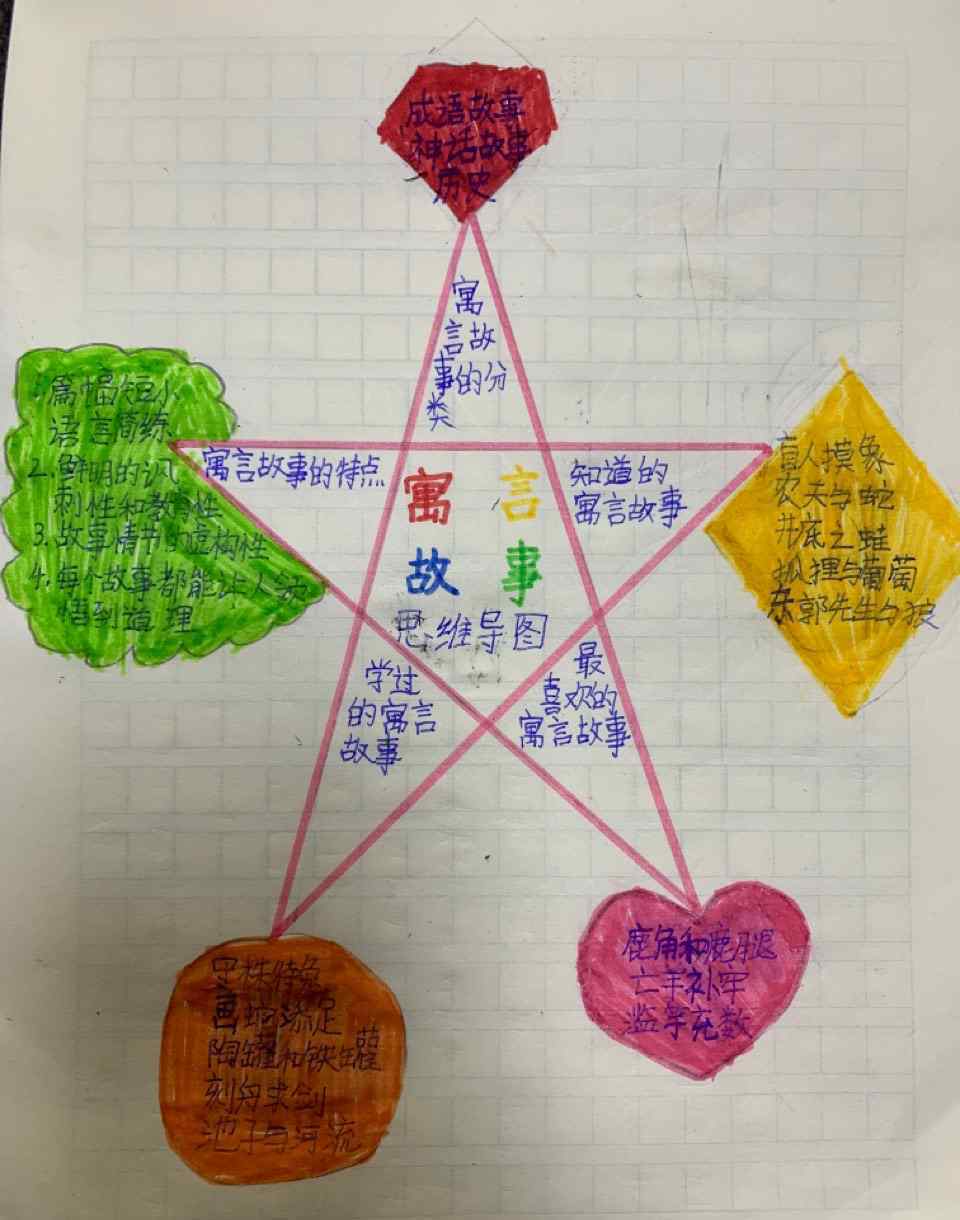 成语故事
神话故事
历史
寓
言故
事的分
类
1.篇幅短小
语言简练
2.鲜明的讽
刺性和教育性
3.故事情节的虚构性
4.每个故事都能让人决
悟到道理
寓言故事的特点
寓言
故事
思维导图
知道的
寓言故事
盲人摸象
农夫与蛇
井底之蛙
狐狸与葡萄
东郭先生与狼
学过
的寓言
故事
最
喜欢的
寓言故事
守株待兔
画蛇添足
陶罐和铁罐
刻舟求剑
池子与河流
鹿角和鹿腿
亡羊补牢
滥竽充数